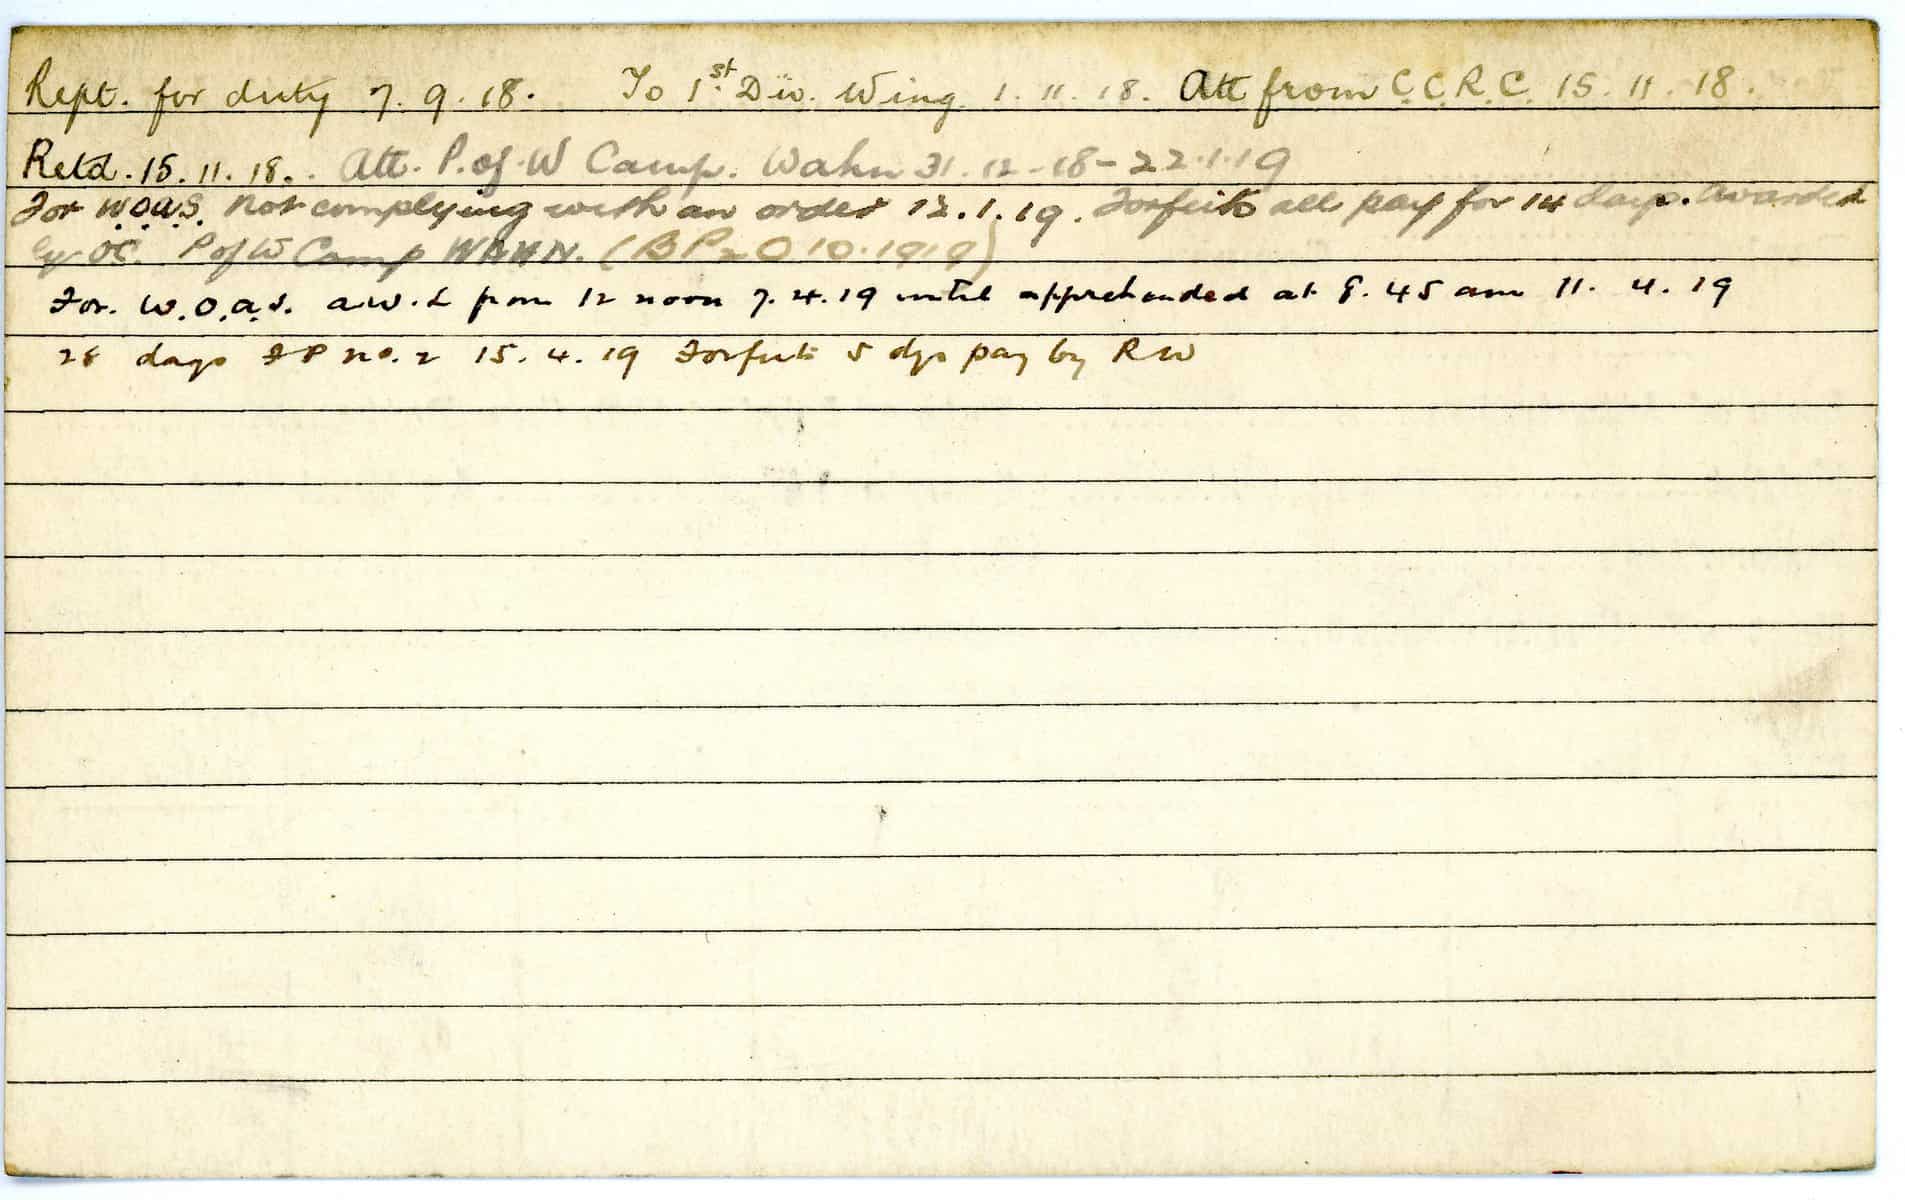 Rept. for duty 7.9.18. To 1st Div. Wing 1.11.18. Att from C.C.R.C. 15.11.18.
Retd. 15.11.18. Att. P. of W Camp. Wahn 31.12-18-22.1.19
For W.O.A.S. Not complying with an order 12.1.19. Forfeits all pay for 14 days. Awarded
by OC. P of W Camp WAHN. (BP2O 10.1919)
For. W.O.A.S. A.W.L from 12 noon 7.4.19 until apprehended at 8.45 am 11.4.19
28 days FP no. 2 15.4.19 Forfeits 5 dys pay by RW